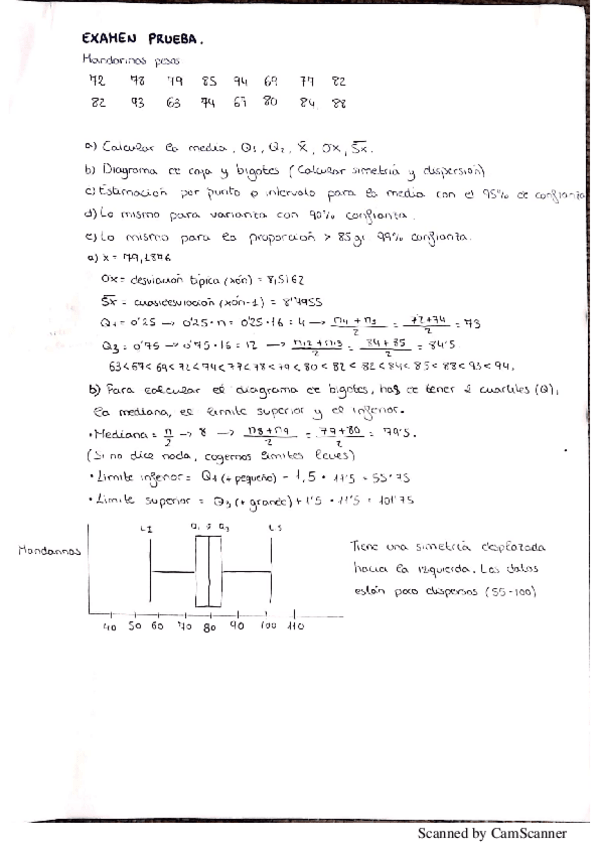 EXAMEN PRUEBA.
Mandarinas pesos
72 78 79 85 94 69 77 82
82 93 63 74 67 80 84 88
a) Calcular la media, Q1, Q2, X̄, σx, S̄x.
b) Diagrama de caja y bigotes (Calcular simetría y dispersión)
c) Estimación por punto o intervalo para la media con el 95% de confianza
d) Lo mismo para varianza con 90% confianza.
e) Lo mismo para la proporción > 85gr 99% confianza.
a) x = 79,1876
σx = desviación típica (xσn) = 8,5162
S̄x = cuasidesviación (xσn-1) = 8'7955
Q1 = 0'25 → 0'25·n = 0'25·16 = 4 → n4 + n5 / 2 = 72+74 / 2 = 73
Q3 = 0'75 → 0'75·16 = 12 → n12 + n13 / 2 = 84+85 / 2 = 84'5
63<67<69<72<74<77<78<79<80<82<82<84<85<88<93<94.
b) Para calcular el diagrama de bigotes, has de tener 2 cuartiles (Q),
la mediana, el límite superior y el inferior.
• Mediana = n/2 → 8 → n8+n9 / 2 = 79+80 / 2 = 79'5.
(Si no dice nada, cogemos límites leves)
• Límite inferior = Q1 (+ pequeño) - 1,5 · 11'5 = 55'75
• Límite superior = Q3 (+ grande) + 1'5 · 11'5 = 101'75
LI Q1 Q3 LS
Mandarinas
Tiene una simetría desplazada
hacia la izquierda. Los datos
están poco dispersos (55-100)
40 50 60 70 80 90 100 110
Scanned by CamScanner